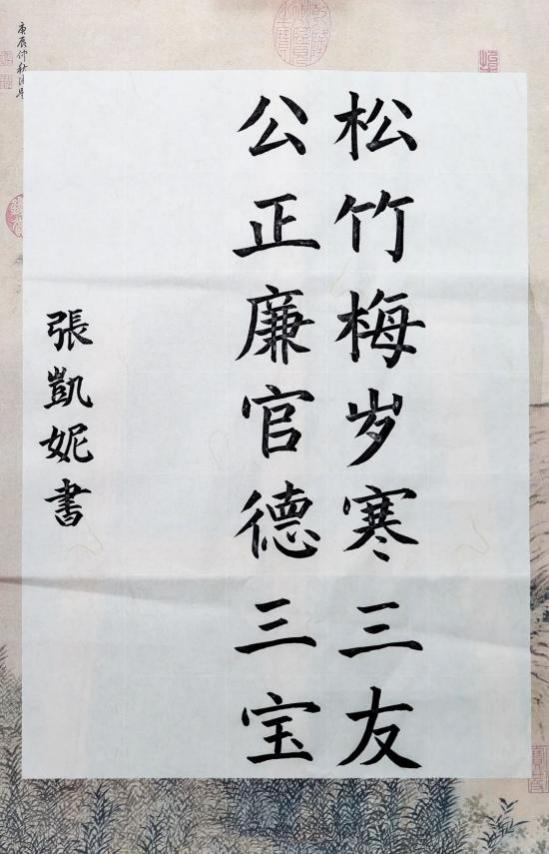 松竹梅岁寒三友
公正廉官德三宝
張凱妮書
庚辰仲秋